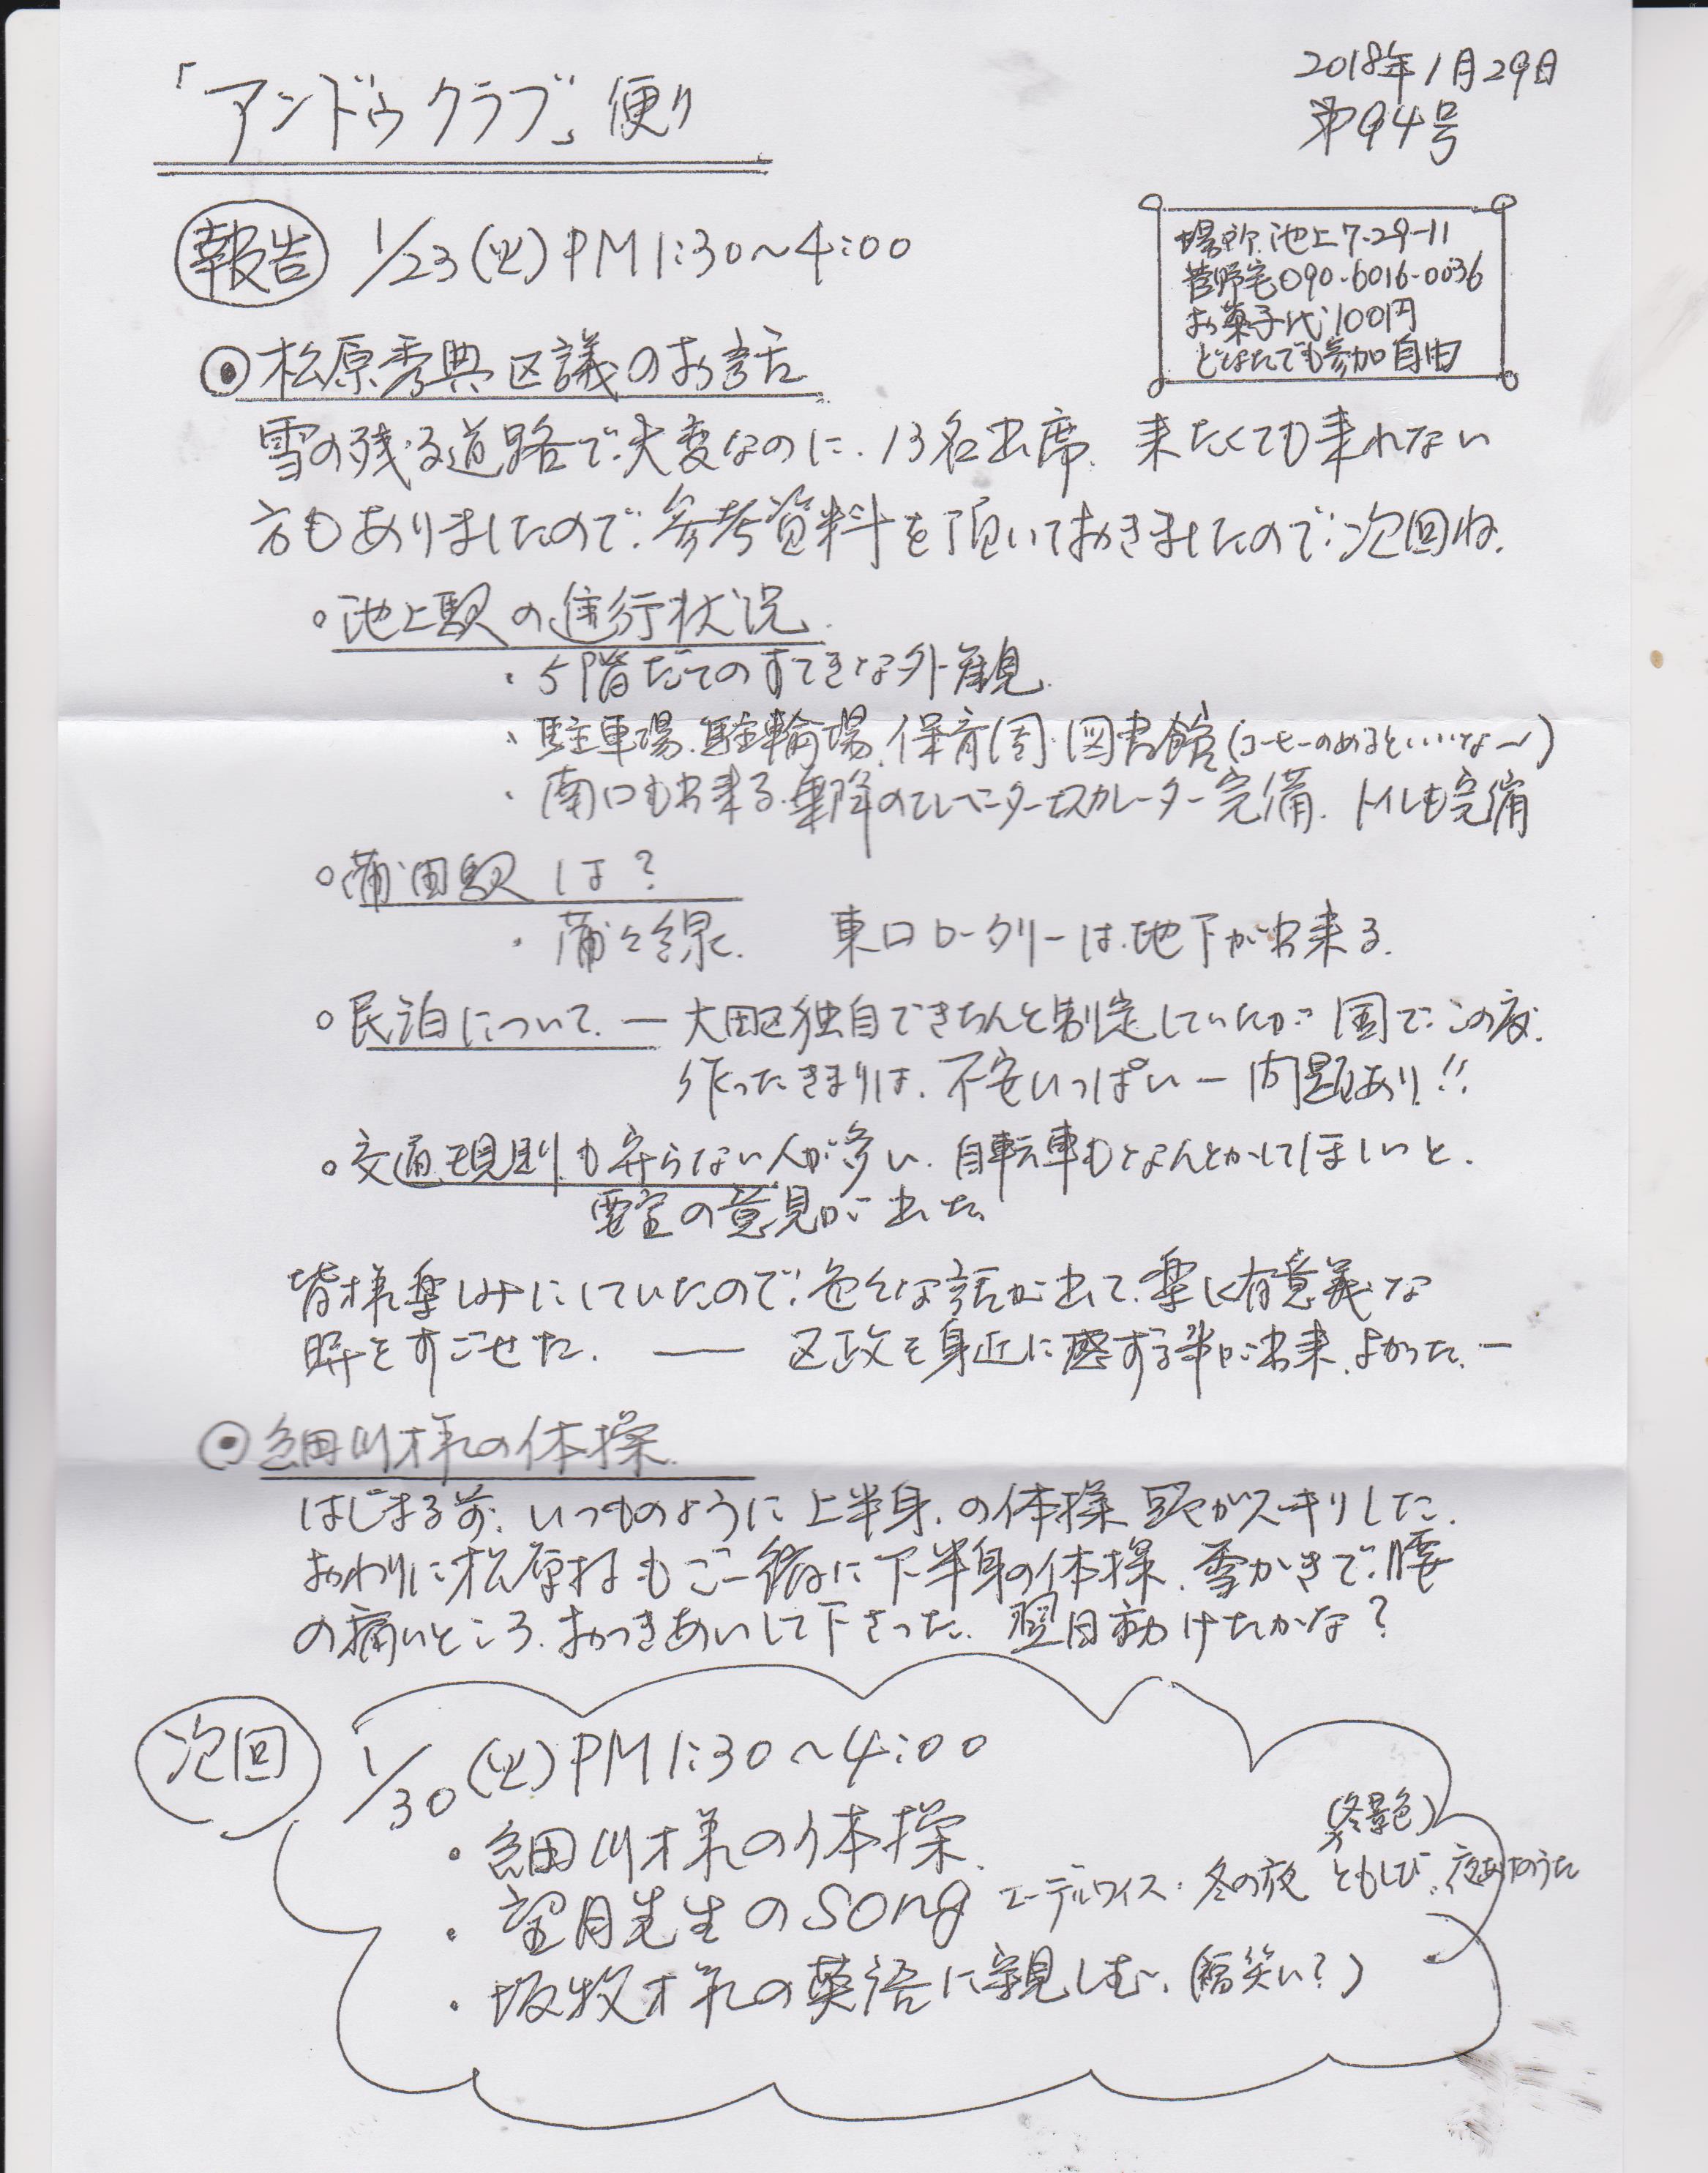 「アンドゥクラブ」便り
2018年1月29日
第94号
報告 1/23(火)PM1:30〜4:00
場所 池上7-29-11
菅野宅090-6016-0036
お菓子代100円
どなたでも参加自由
◎松原秀典区議のお話
雪の残る道路で大変なのに、13名出席、来たくても来れない
方もありましたので、参考資料を頂いておきましたので次回ね。
○池上駅の進行状況
・5階だてのすてきな外観
・駐車場、駐輪場、保育園、図書館(コーヒーのめるといいな〜)
・南口も出来る乗降のエレベーターエスカレーター完備、トイレも完備
○蒲田駅は?
・蒲々線、東口ロータリーは、地下が出来る。
○民泊について、ー大田区独自できちんと制定していたが国でこの度、
作ったきまりは、不安いっぱいー問題あり!!
○交通規則も守らない人が多い、自転車もなんとかしてほしいと、
要望の意見が出た。
皆様楽しみにしていたので、色々な話が出て、楽しく有意義な
時をすごせた。ー区政を身近に感ずる事が出来、よかった。ー
◎細川様の体操
はじまる前、いつものように上半身、の体操 頭がスーキリした。
おわりに松原様もご一緒に下半身の体操、雪かきで腰
の痛いところ、おつきあいして下さった。翌日動けたかな?
次回 1/30(火)PM1:30〜4:00
・細川様の体操
(冬景色)
・望月先生のsong エーデルワイス・冬の夜 ともしび、夜あけのうた
・坂牧様の英語に親しむ、(福笑い?)